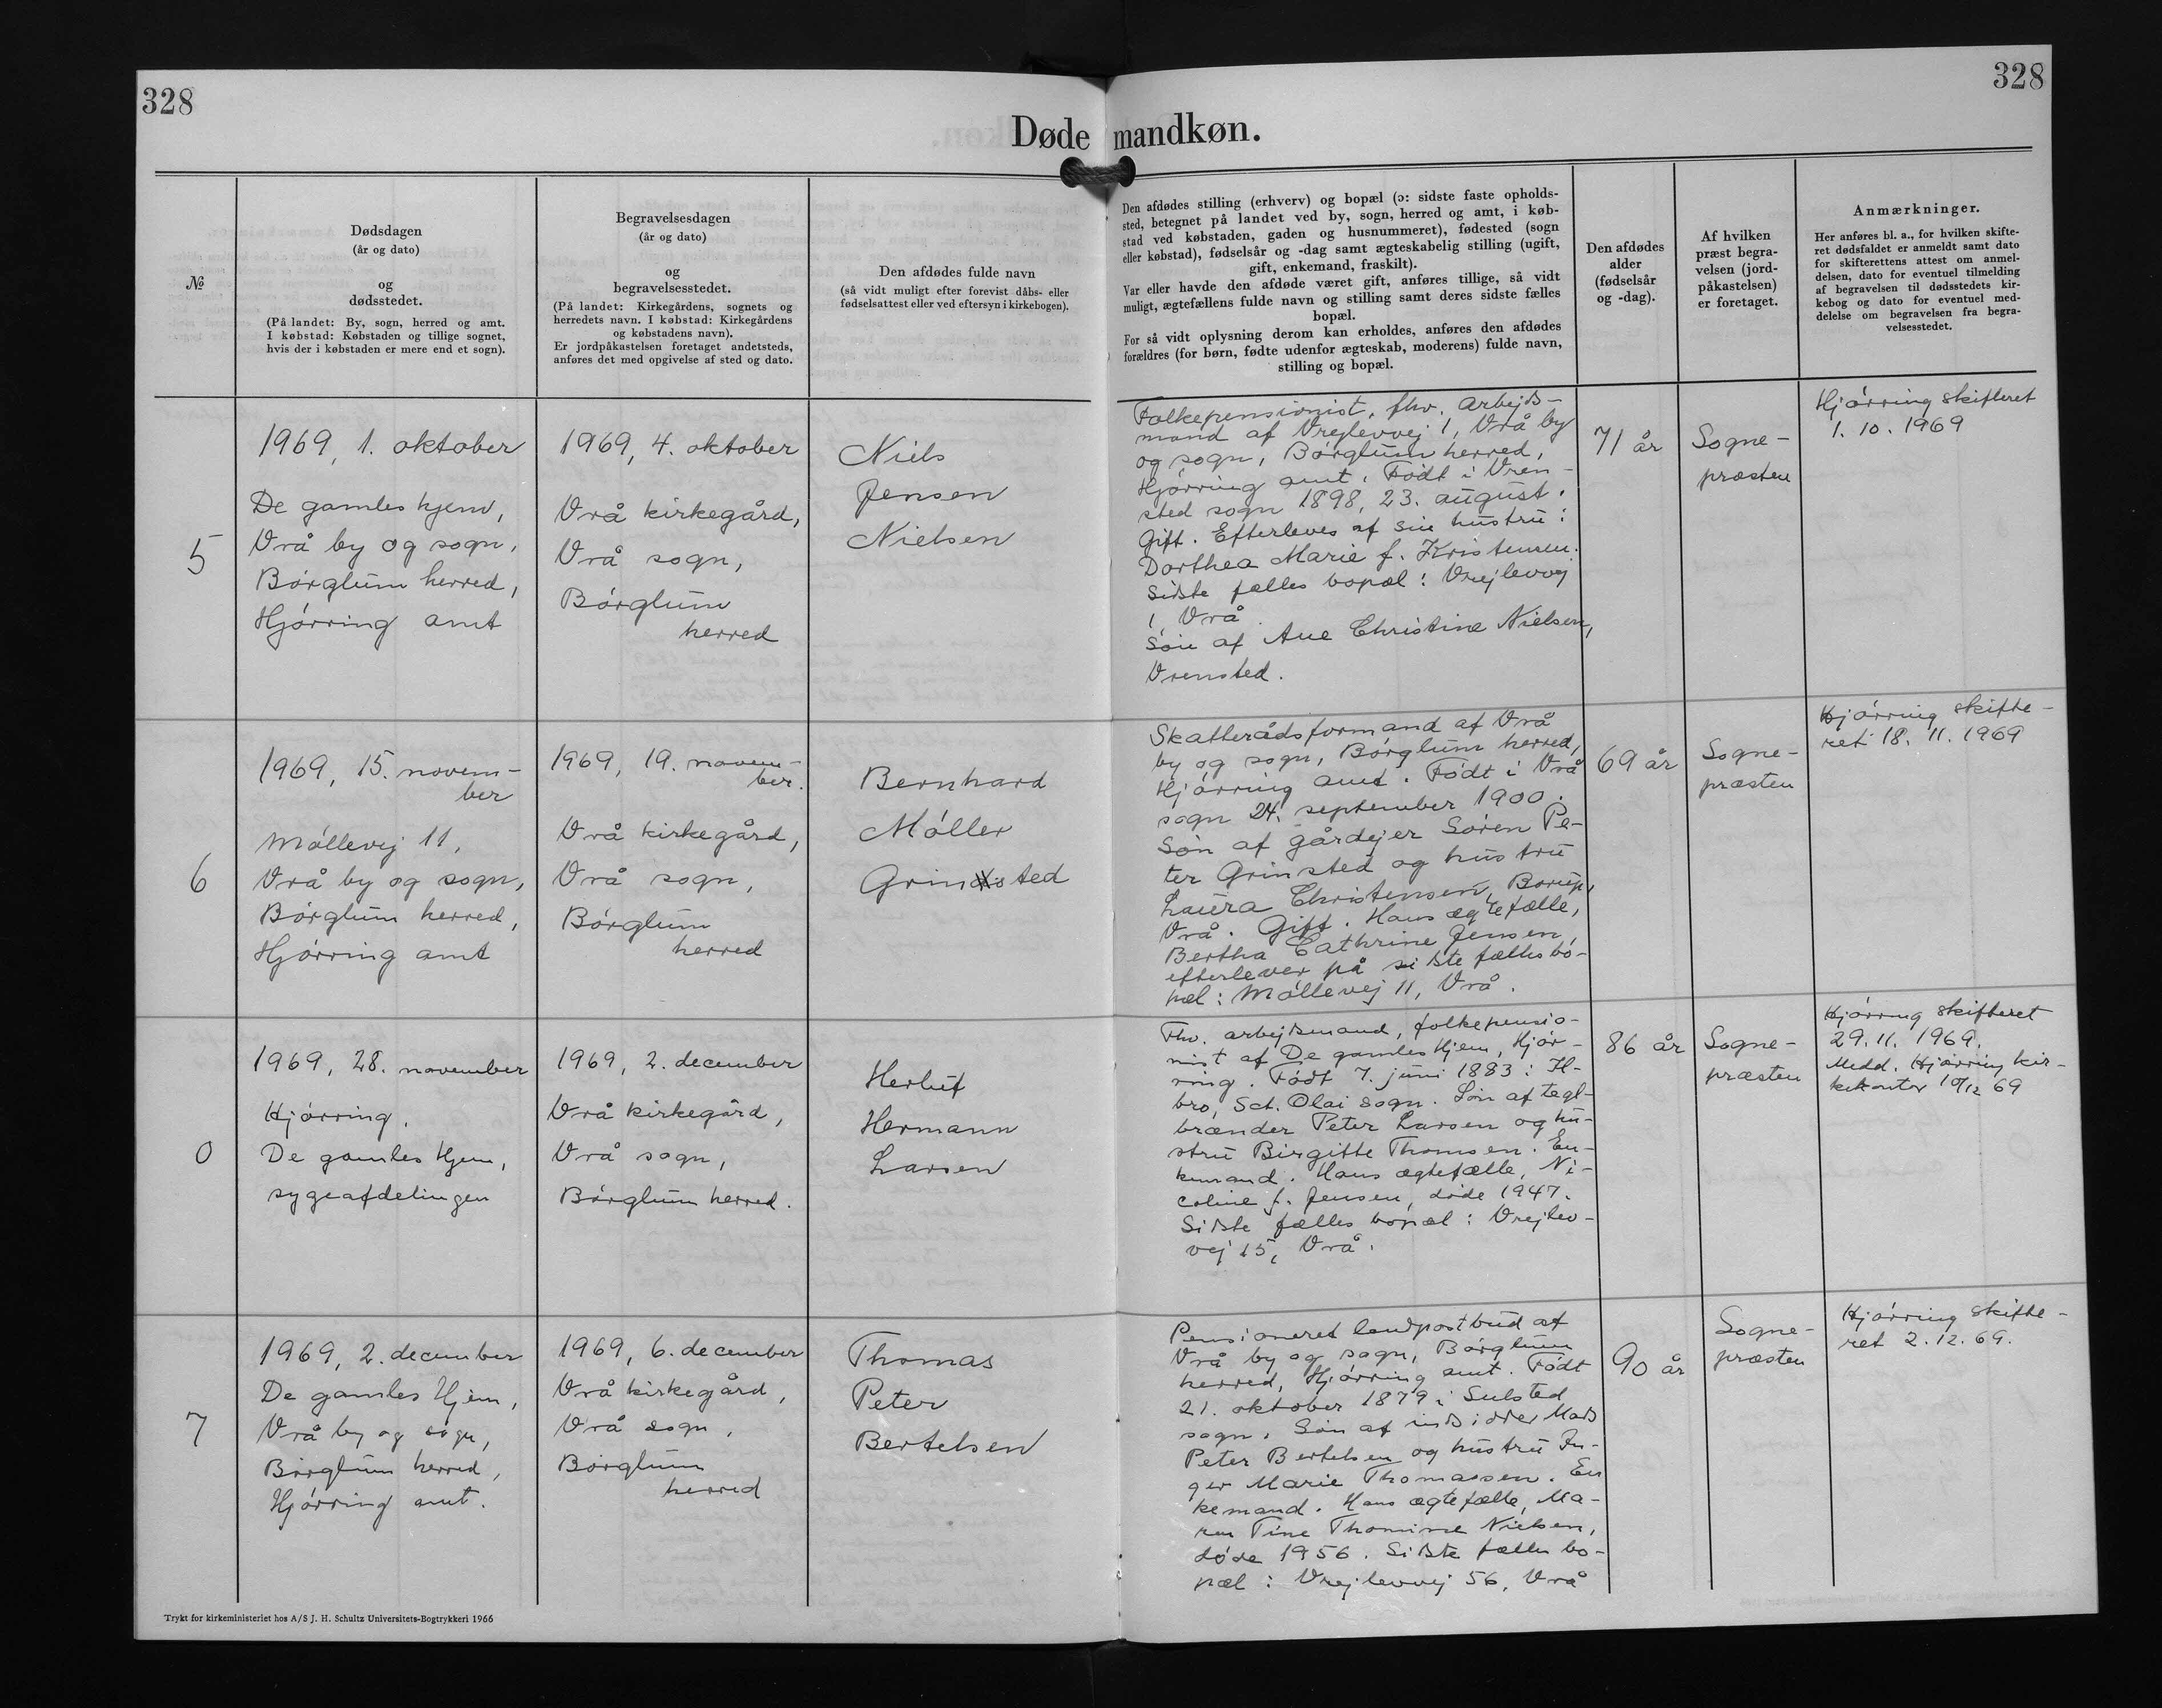 328
328
Døde mandkøn.
№
Dødsdagen
(år og dato)
og
dødsstedet.
(På landet: By, sogn, herred og amt.
I købstad: Købstaden og tillige sognet,
hvis der i købstaden er mere end et sogn).
Begravelsesdagen
(år og dato)
og
begravelsesstedet.
(På landet: Kirkegårdens, sognets og
herredets navn. I købstad: Kirkegårdens
og købstadens navn).
Er jordpåkastelsen foretaget andetsteds,
anføres det med opgivelse af sted og dato.
Den afdødes fulde navn
(så vidt muligt efter forevist dåbs- eller
fødselsattest eller ved eftersyn i kirkebogen).
Den afdødes stilling (erhverv) og bopæl (ɔ: sidste faste opholds-
sted, betegnet på landet ved by, sogn, herred og amt, i køb-
stad ved købstaden, gaden og husnummeret), fødested (sogn
eller købstad), fødselsår og -dag samt ægteskabelig stilling (ugift,
gift, enkemand, fraskilt).
Var eller havde den afdøde været gift, anføres tillige, så vidt
muligt, ægtefællens fulde navn og stilling samt deres sidste fælles
bopæl.
For så vidt oplysning derom kan erholdes, anføres den afdødes
forældres (for børn, fødte udenfor ægteskab, moderens) fulde navn,
stilling og bopæl.
Den afdødes
alder
(fødselsår
og -dag).
Af hvilken
præst begra-
velsen (jord-
påkastelsen)
er foretaget.
Anmærkninger.
Her anføres bl. a., for hvilken skifte-
ret dødsfaldet er anmeldt samt dato
for skifterettens attest om anmel-
delsen, dato for eventuel tilmelding
af begravelsen til dødsstedets kir-
kebog og dato for eventuel med-
delelse om begravelsen fra begra-
velsesstedet.
5
1969, 1. oktober
De gamles hjem,
Vrå by og sogn,
Børglum herred,
Hjørring amt
1969, 4. oktober
Vrå kirkegård,
Vrå sogn,
Børglum
herred
Niels
Jensen
Nielsen
Folkepensionist, fhv. arbejds-
mand af Vrejlevvej 1, Vrå by
og sogn, Børglum herred,
Hjørring amt. Født i Vren-
sted sogn 1898, 23. august.
Gift. Efterleves af sin hustru:
Dorthea Marie f. Kristensen.
Sidste fælles bopæl: Vrejlevvej
1, Vrå.
Søn af Ane Christine Nielsen,
Vrensted.
71 år
Sogne-
præsten
Hjørring skifteret
1. 10. 1969
6
1969, 15. novem-
ber
Møllevej 11,
Vrå by og sogn,
Børglum herred,
Hjørring amt
1969, 19. novem-
ber.
Vrå kirkegård,
Vrå sogn,
Børglum
herred
Bernhard
Møller
Grinsted
Skatterådsformand af Vrå
by og sogn, Børglum herred,
Hjørring amt. Født i Vrå
sogn 24. september 1900.
Søn af gårdejer Søren Pe-
ter Grinsted og hustru
Laura Christensen, Borup,
Vrå. Gift. Hans ægtefælle,
Bertha Cathrine Jensen,
efterlever på sidste fælles bo-
pæl: Møllevej 11, Vrå.
69 år
Sogne-
præsten
Hjørring skifte-
ret 18. 11. 1969
0
1969, 28. november
Hjørring.
De gamles Hjem,
sygeafdelingen
1969, 2. december
Vrå kirkegård,
Vrå sogn,
Børglum herred.
Herluf
Hermann
Larsen
Fhv. arbejdsmand, folkepensio-
nist af De gamles Hjem, Hjør-
ring. Født 7. juni 1883 i H-
bro, Sct. Olai sogn. Søn af tegl-
brænder Peter Larsen og hu-
stru Birgitte Thomsen. En-
kemand. Hans ægtefælle, Ni-
coline f. Jensen, døde 1947.
Sidste fælles bopæl: Vrejlev-
vej 15, Vrå.
86 år
Sogne-
præsten
Hjørring skifteret
29. 11. 1969.
Medd. Hjørring kir-
kekontor 10/12 69
7
1969, 2. december
De gamles Hjem,
Vrå by og sogn,
Børglum herred,
Hjørring amt.
1969, 6. december
Vrå kirkegård,
Vrå sogn,
Børglum
herred
Thomas
Peter
Bertelsen
Pensioneret landpostbud af
Vrå by og sogn, Børglum
herred, Hjørring amt. Født
21. oktober 1879 i Sulsted
sogn. Søn af indsidder Mads
Peter Bertelsen og hustru In-
ger Marie Thomassen. En
kemand. Hans ægtefælle, Ma-
ren Tine Thomine Nielsen,
døde 1956. Sidste fælles bo-
pæl: Vrejlevvej 56, Vrå
90 år
Sogne-
præsten
Hjørring skifte-
ret 2. 12. 69.
Trykt for kirkeministeriet hos A/S J. H. Schultz Universitets-Bogtrykkeri 1966